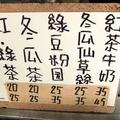 紅茶牛奶
冬瓜仙草絲
綠豆粉圓
冬瓜茶
紅茶
35 45
25 35
25 35
20 25
20 25